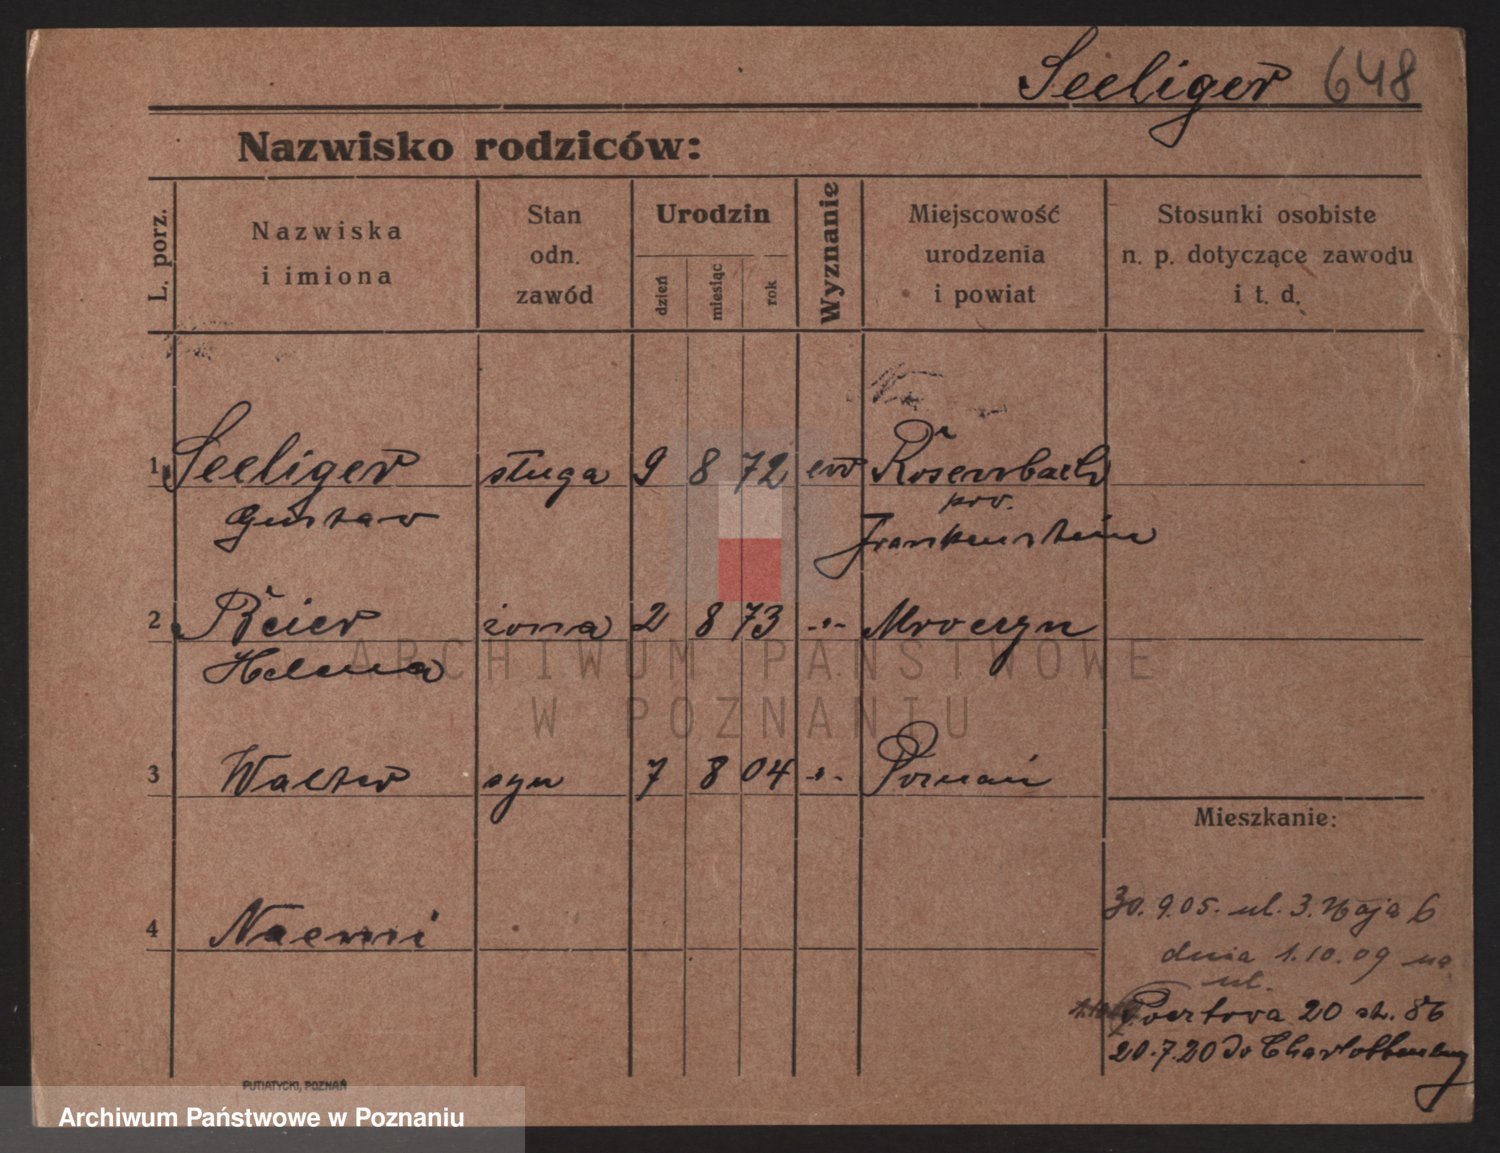 Seeliger 648
Nazwisko rodziców:
L. porz.
Nazwiska
i imiona
Stan
odn.
zawód
Urodzin
dzień
miesiąc
rok
Wyznanie
Miejscowość
urodzenia
i powiat
Stosunki osobiste
n. p. dotyczące zawodu
i t. d.
1 Seeliger sługa 9 8 72 ew Rosenbach
Gustav pow.
Frankenstein
2 Reier żona 2 8 73 -"- Mroczyn
Helena
ARCHIWUM PAŃSTWOWE
W POZNANIU
3 Walter syn 7 8 04 -"- Poznań
Mieszkanie:
4 Naemi
30.9.05. ul. 3. Maja 6
dnia 1.10.09 na
ul.
Pocztowa 20 st. 86
20.7.20 do Charlottenburg
PUTIATYCKI, POZNAŃ
Archiwum Państwowe w Poznaniu